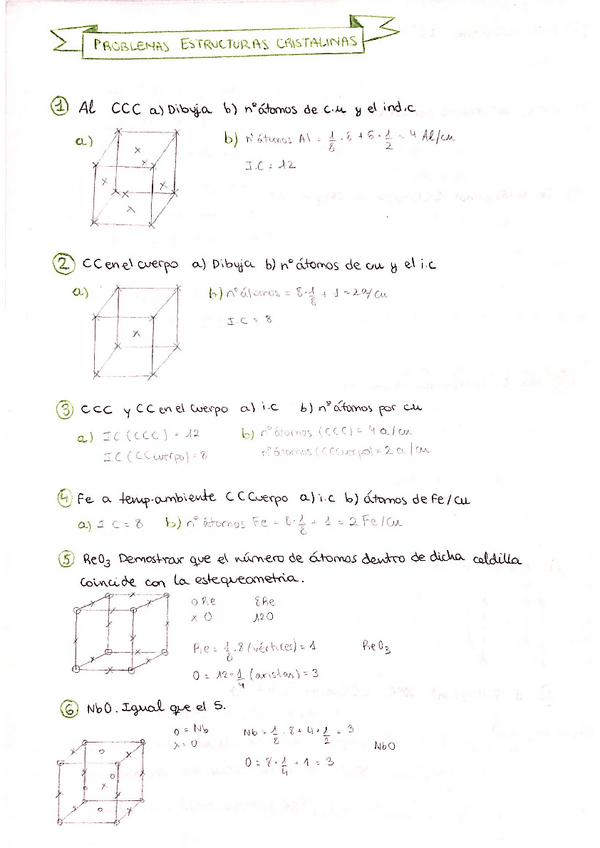 PROBLEMAS ESTRUCTURAS CRISTALINAS
① Al CCC a) Dibuja b) nº átomos de c.u y el ind.c
a)
b) nº átomos Al = 1/8 · 8 + 6 · 1/2 = 4 Al/cu
I.C = 12
② CC en el cuerpo a) Dibuja b) nº átomos de cu y el i.c
a)
b) nº átomos = 8 · 1/8 + 1 = 2a/cu
I C = 8
③ CCC y CC en el cuerpo a) i.c b) nº átomos por cu
a) IC (CCC) = 12
b) nº átomos (CCC) = 4 a/cu
I.C (CCuerpo) = 8
nº átomos (CCuerpo) = 2 a/cu
④ Fe a temp. ambiente CCCuerpo a) i.c b) átomos de Fe/cu
a) I C = 8 b) nº átomos Fe = 8 · 1/8 + 1 = 2 Fe/cu
⑤ ReO3 Demostrar que el número de átomos dentro de dicha celdilla
coincide con la estequeometria.
o Re 8Re
x O 12O
Re = 1/8 · 8 (vértices) = 1 ReO3
O = 12 · 1/4 (aristas) = 3
⑥ NbO. Igual que el 5.
o = Nb Nb = 1/8 · 8 + 4 · 1/2 = 3
x = O NbO
O = 8 · 1/4 + 1 = 3